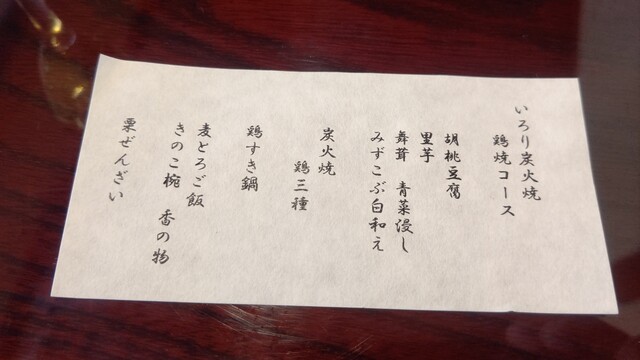 いろり炭火焼
鶏焼コース
胡桃豆腐
里芋
舞茸　青菜浸し
みずこぶ白和え
炭火焼
鶏三種
鶏すき鍋
麦とろご飯
きのこ椀　香の物
栗ぜんざい